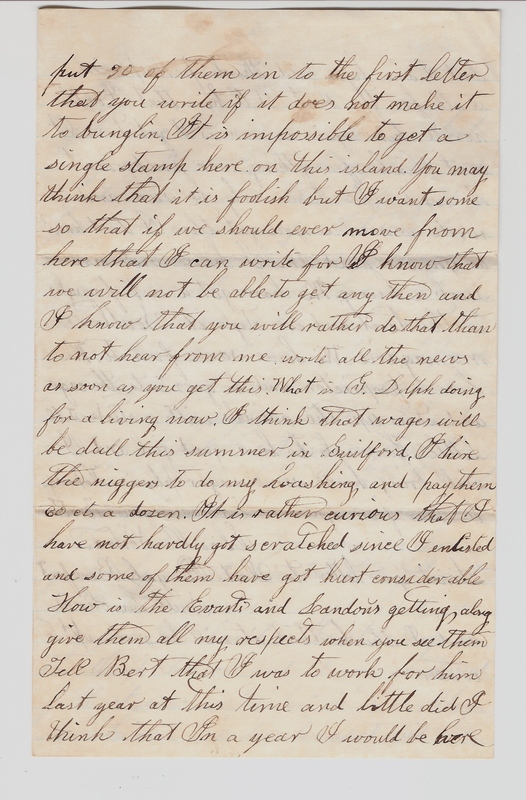 put 20 of them in to the first letter
that you write if it does not make it
to bunglin. It is impossible to get a
single stamp here on this island. You may
think that it is foolish but I want some
so that if we should ever move from
here that I can write for I know that
we will not be able to get any then and
I know that you will rather do that than
to not hear from me write all the news
as soon as you get this. What is G. Dolph doing
for a living now. I think that wages will
be dull this summer in Guilford. I hire
the niggers to do my washing and pay them
cts a dozen. It is rather curious that I
have not hardly got scratched since I enlisted
and some of them have got hurt considerable
How is the Evarts and Landons getting along
give them all my respects when you see them
Tell Bert that I was to work for him
last year at this time and little did I
think that In a year I would be here